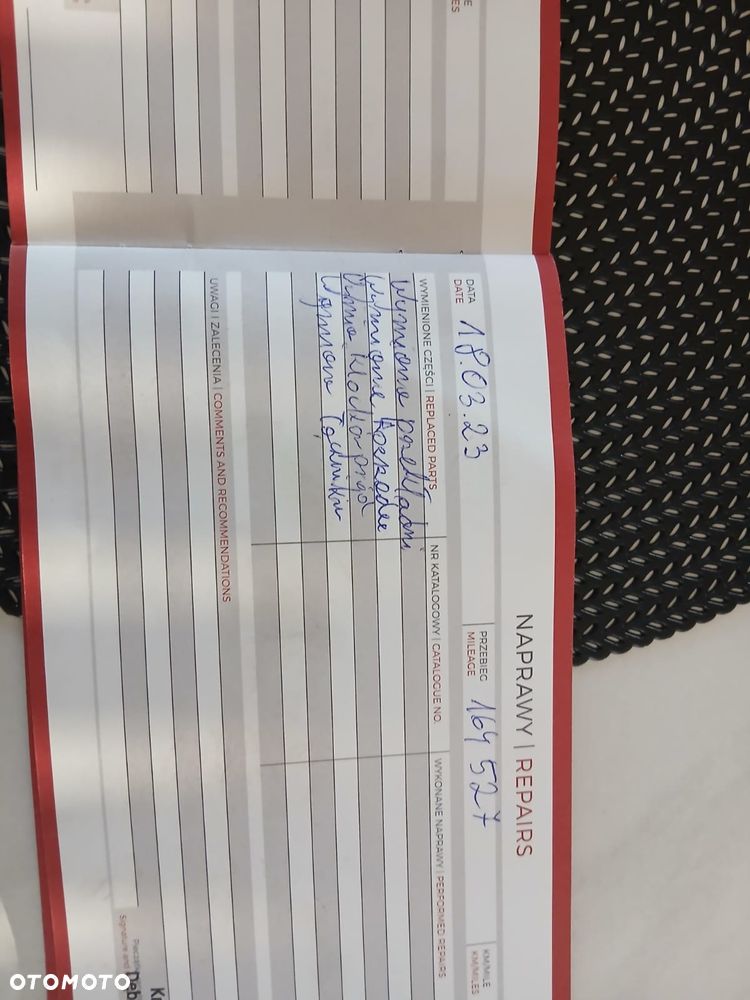 NAPRAWY | REPAIRS
DATA
DATE
18.03.23
PRZEBIEG
MILEAGE
164 527
KM/MILE
KM/MILES
WYMIENIONE CZĘŚCI | REPLACED PARTS
NR KATALOGOWY | CATALOGUE NO.
WYKONANE NAPRAWY | PERFORMED REPAIRS
Wymiana
Wymiana
klocków przód
Wymiana łączników
UWAGI I ZALECENIA | COMMENTS AND RECOMMENDATIONS
OTOMOTO